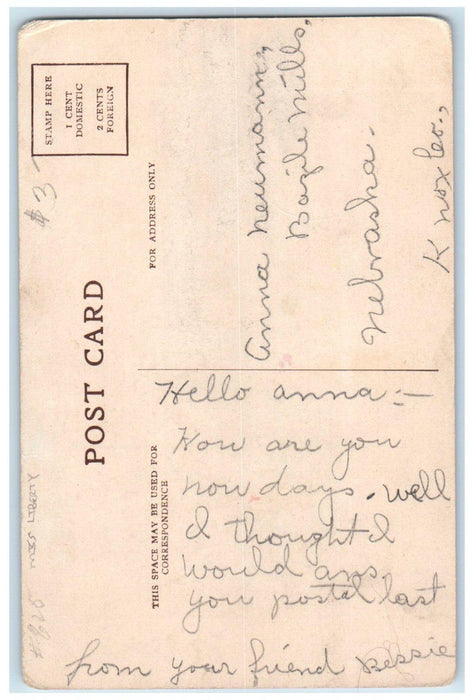 POST CARD
STAMP HERE
1 CENT
DOMESTIC
2 CENTS
FOREIGN
$3
FOR ADDRESS ONLY
Anna Neumann,
Bazile Mills,
Nebraska.
Knox Co.,
THIS SPACE MAY BE USED FOR
CORRESPONDENCE
MISS LIBERTY
Hello Anna:-
How are you
now days. Well
I thought I
would ans.
you postal last
from your friend Bessie